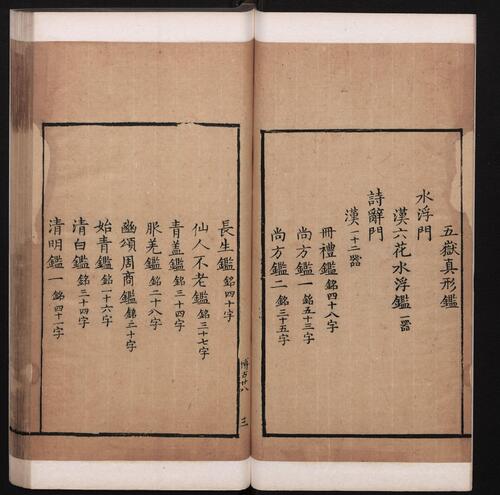 五嶽真形鑑
水浮門
漢六花水浮鑑一器
詩辭門
漢一十二器
冊禮鑑銘四十八字
尚方鑑一銘五十三字
尚方鑑二銘三十五字
博古廿八
三
長生鑑銘四十字
仙人不老鑑銘三十七字
青盖鑑銘三十四字
服羌鑑銘二十八字
豳頌周商鑑銘二十字
始青鑑銘一十六字
清白鑑銘三十四字
清明鑑一銘四十一字